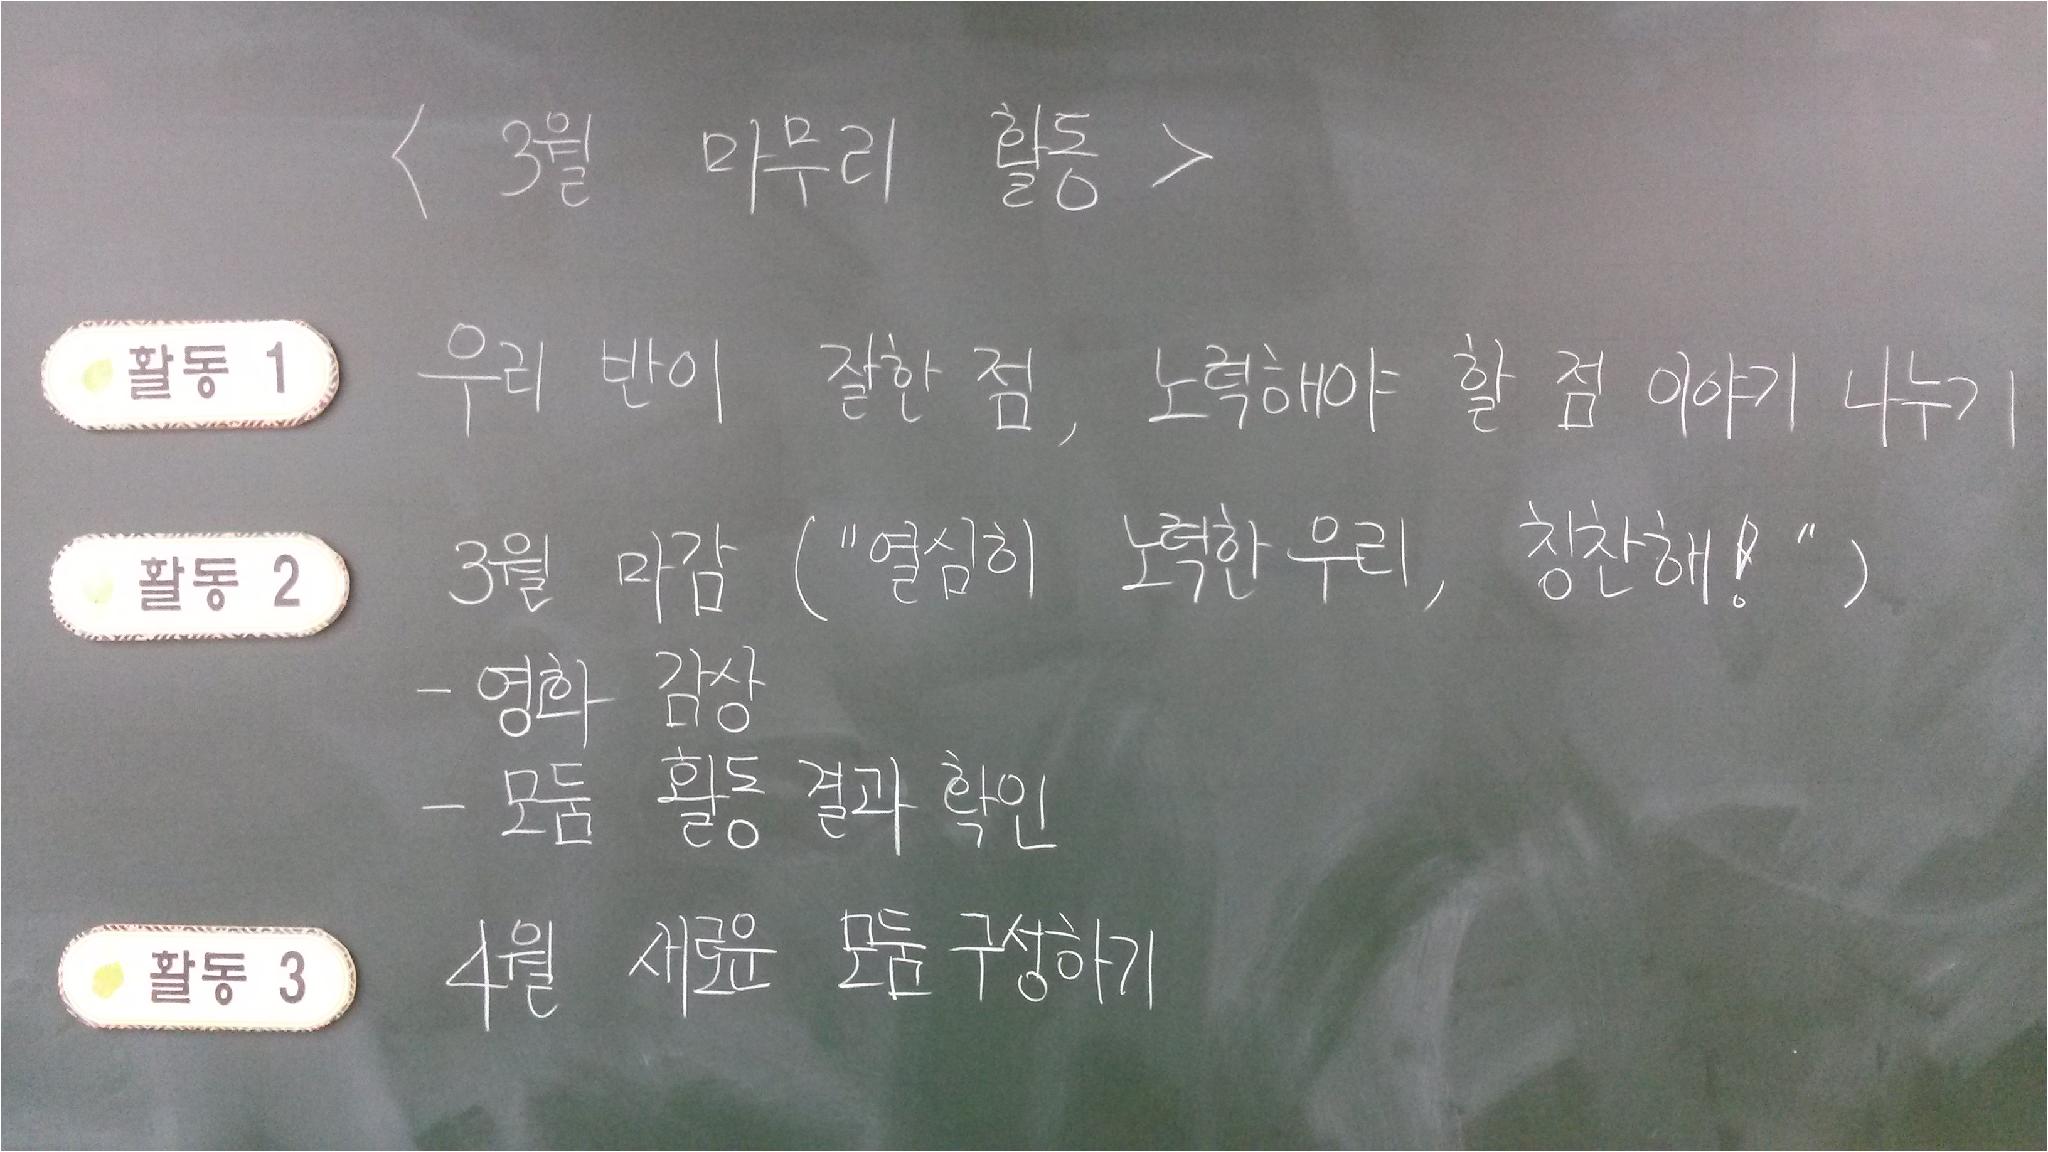 < 3월 마무리 활동 >
활동 1 우리 반이 잘한 점, 노력해야 할 점 이야기 나누기
활동 2 3월 마감 ("열심히 노력한 우리, 칭찬해!")
- 영화 감상
- 모둠 활동 결과 확인
활동 3 4월 새로운 모둠 구성하기